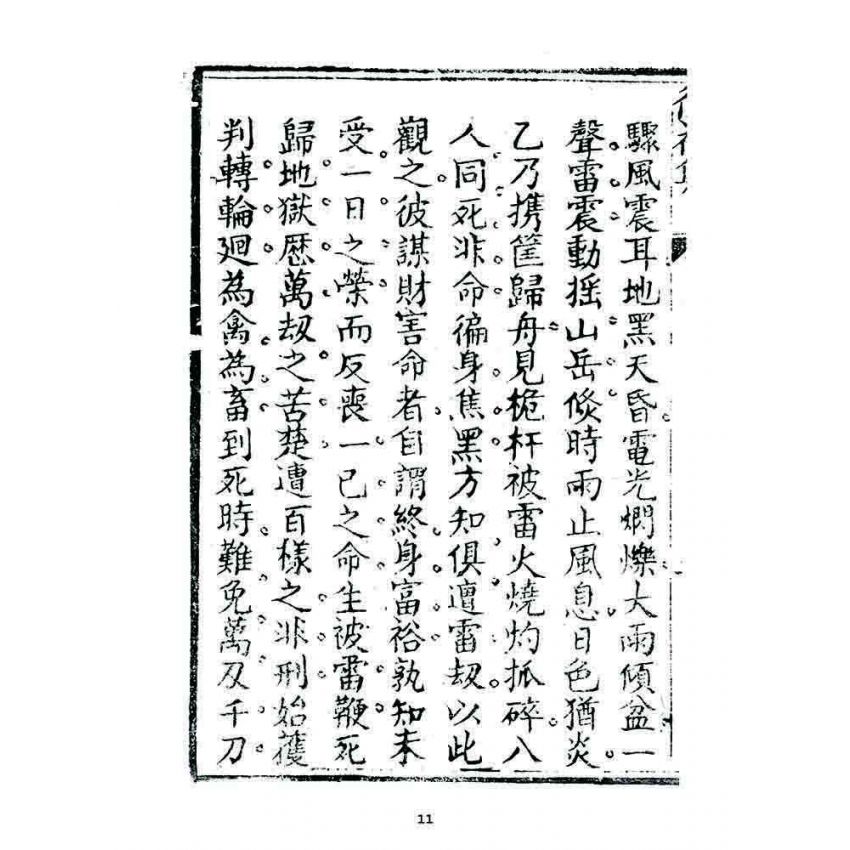 驟風震耳地黑天昏電光爓爍大雨傾盆一
聲雷震動摇山岳倐時雨止風息日色猶炎
乙乃携筐歸舟見桅杆被雷火燒灼抓碎八
人同死非命徧身焦黑方知俱遭雷刼以此
觀之彼謀財害命者自謂終身富裕孰知未
受一日之榮而反喪一已之命生被雷鞭死
歸地獄歷萬刼之苦楚遭百樣之非刑始獲
判轉輪廻為禽為畜到死時難免萬及千刀
11